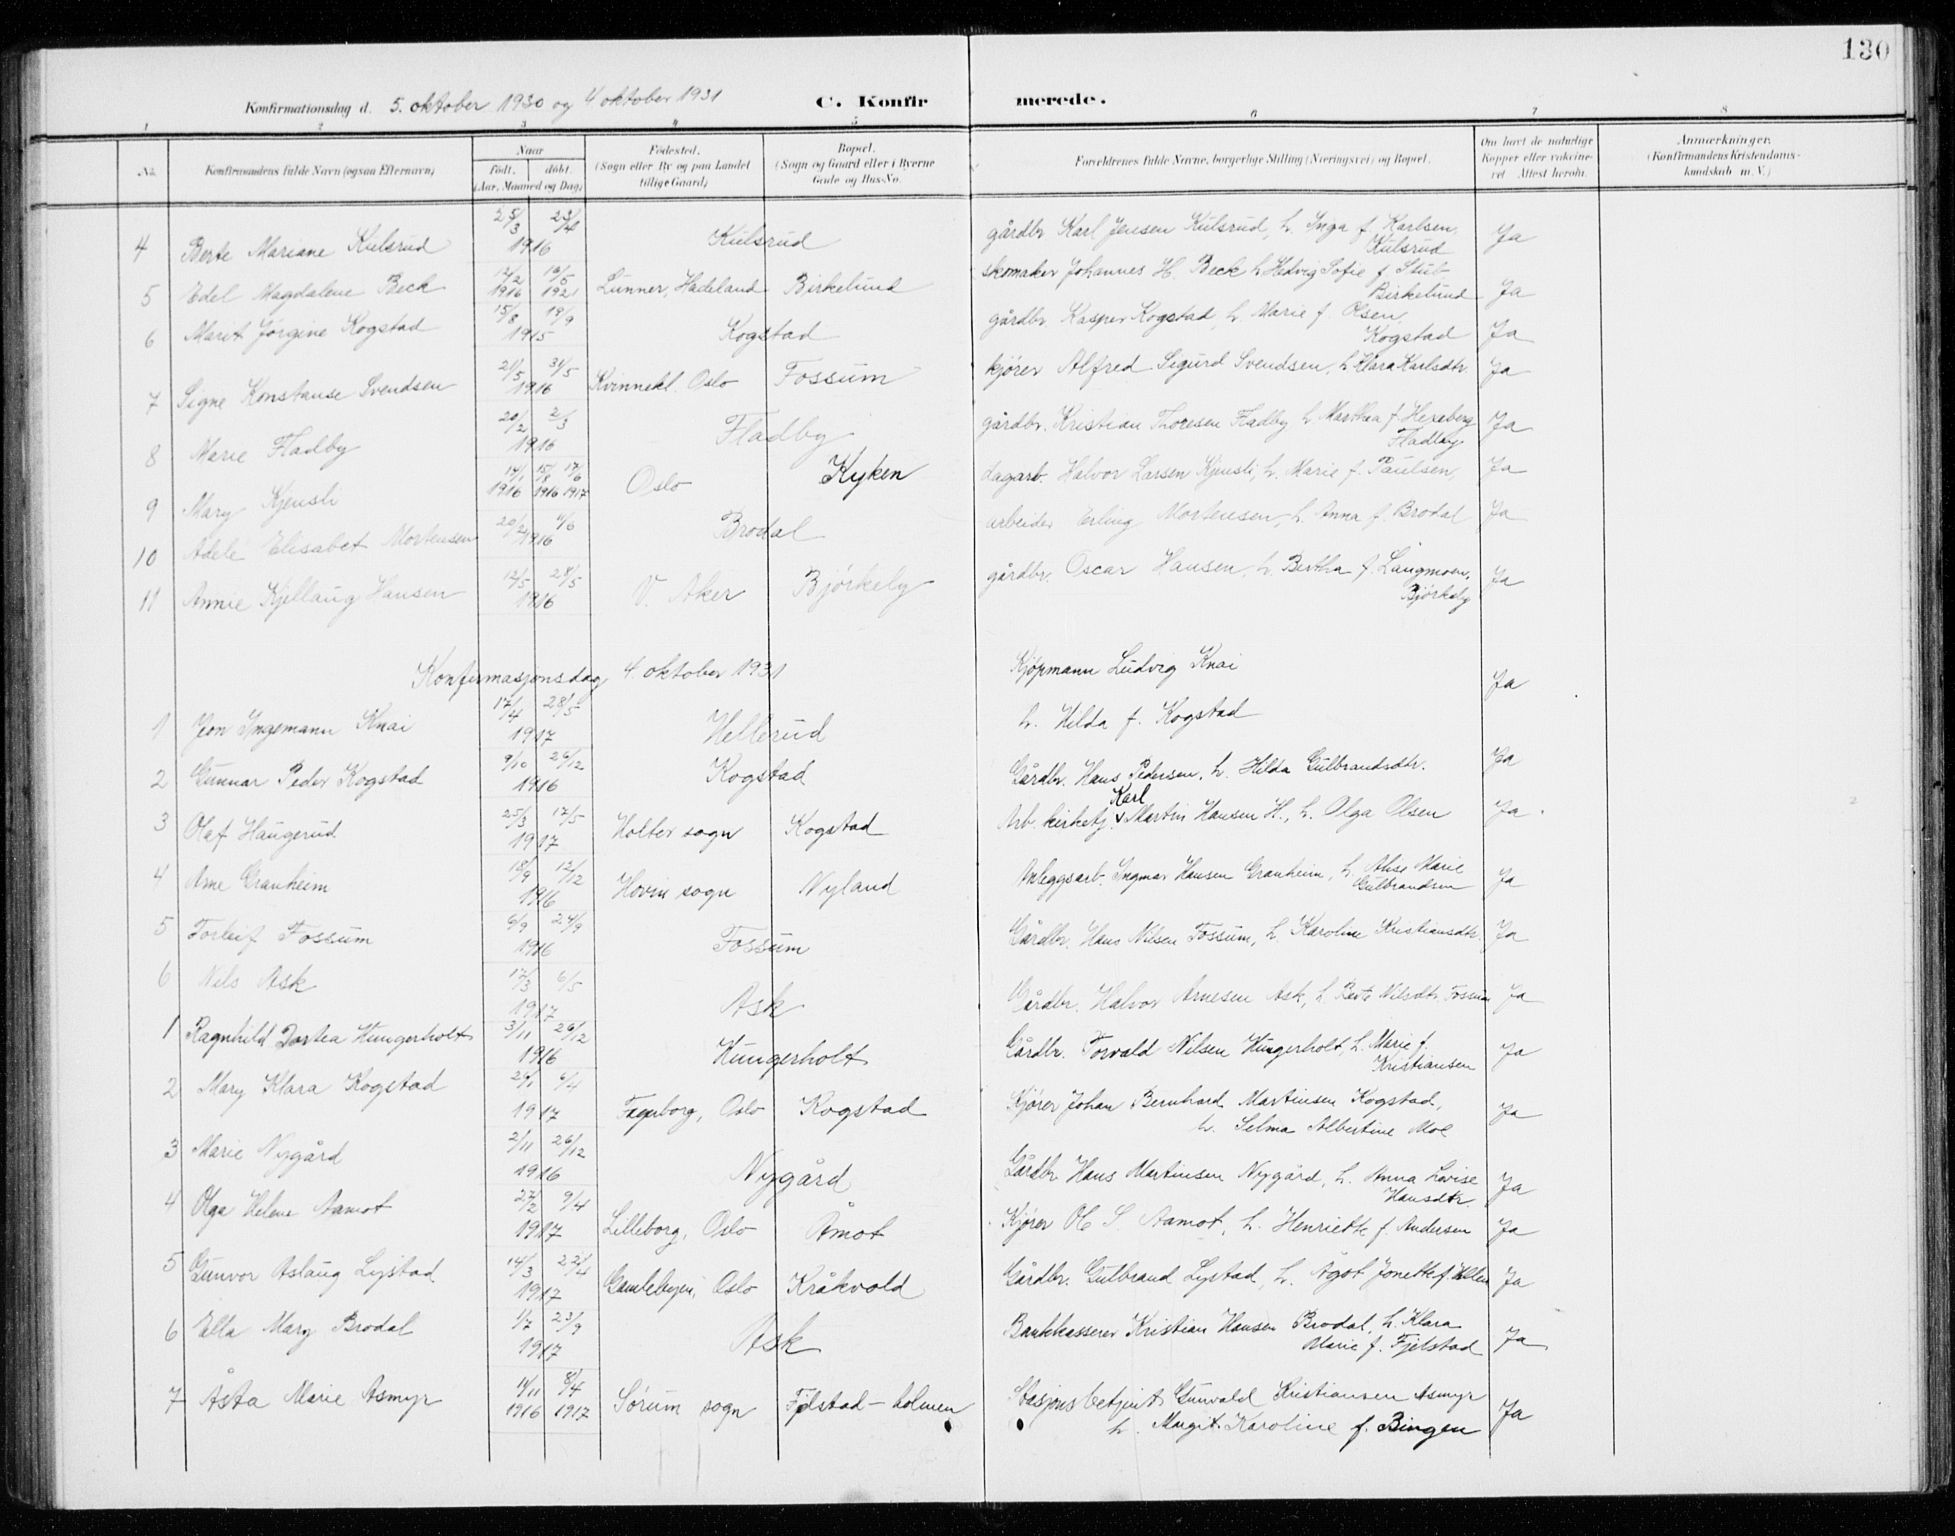 130
Konfirmationsdag d. 5. oktober 1930 og 4 oktober 1931 C. Konfirmerede.
1 2 3 4 5 6 7 8
No. Konfirmandens fulde Navn (ogsaa Efternavn) Naar født. døbt. (Aar, Maaned og Dag) Fødested. (Sogn eller By og paa Landet tillige Gaard) Bopæl. (Sogn og Gaard eller i Byerne Gade og Hus-No. Forældrenes fulde Navne, borgerlige Stilling (Næringsvei) og Bopæl. Om havt de naturlige Kopper eller vakcineret. Attest herom. Anmærkninger. (Konfirmandens Kristendomskundskab m. V.)
4 Berte Mariane Kulsrud 25/3 23/4 1916 Kulsrud gårdbr Karl Jensen Kulsrud, h. Inga f. Karlsen, Kulsrud Ja
5 Edel Magdalene Beck 12/2 1916 16/5 1921 Lunner, Hadeland Birkelund skomaker Johannes H. Beck h Hedvig Sofie f. Stub Birkelund Ja
6 Marit Jørgine Kogstad 15/8 19/9 1915 Kogstad gårdbr. Kasper Kogstad, h. Marie f. Olsen, Kogstad Ja
7 Signe Konstanse Svendsen 21/5 31/5 1916 Kvinnekl. Oslo Fossum kjører Alfred Sigurd Svendsen, h Klara Karlsdtr. Ja
8 Marie Fladby 20/2 2/3 1916 Fladby gårdbr. Kristian Thoresen Fladby h. Marthea f. Hexeberg Fladby Ja
9 Mary Kjensli 14/1 1916 15/8 1916 17/6 1917 Oslo Kyken dagarb. Halvor Larsen Kjensli, h. Marie f. Paulsen, Ja
10 Adele Elisabet Mortensen 20/2 4/6 1916 Brodal arbeider Erling Mortensen, h. Anna f. Brodal Ja
11 Annie Kjellaug Hansen 12/5 28/5 1916 V. Aker Bjørkely gårdbr. Oscar Hansen, h. Bertha f. Langmoen, Bjørkely Ja
Konfirmasjonsdag 4. oktober 1931
1 Jon Ingemann Knai 17/4 28/5 1917 Hellerud Kjøpmann Ludvig Knai h. Hilda f. Kogstad Ja
2 Gunnar Peder Kogstad 9/10 26/12 1916 Kogstad Gårdbr. Hans Pedersen, h. Hilda Gulbrandsdtr. Ja
3 Olaf Haugerud 25/3 17/5 1917 Holter sogn Kogstad Arb. kirketj. Karl Martin Hansen H., h. Olga Olsen Ja
4 Arne Granheim 18/9 12/12 1916 Hovin sogn Nyland Anleggsarb. Ingmar Hansen Granheim, h. Alise Marie Gulbrandsen Ja
5 Torleif Fossum 6/9 24/9 1916 Fossum Gårdbr. Hans Nilsen Fossum, h. Karoline Kristiansdtr. Ja
6 Nils Ask 17/3 6/5 1917 Ask Gårdbr. Halvor Arnesen Ask, h. Berte Nilsdtr. Fossum Ja
1 Ragnhild Dortea Hungerholt 3/11 26/12 1916 Hungerholt Gårdbr. Torvald Nilsen Hungerholt, h. Marie f. Kristiansen Ja
2 Mary Klara Kogstad 6/4 1917 Fagerborg, Oslo Kogstad Kjører Johan Bernhard Martinsen Kogstad, h. Selma Albertine Moe Ja
3 Marie Nygård 2/11 26/12 1916 Nygård Gårdbr Hans Martinsen Nygård, h. Anna Lovise Hansdtr. Ja
4 Olga Helene Aamot 27/2 9/4 1917 Lilleborg, Oslo Åmot Kjører Ole S. Aamot, h. Henriette f. Andersen Ja
5 Gunvor Aslaug Lystad 14/3 22/4 1917 Gamlebyen, Oslo Kråkvold Gårdbr. Gulbrand Lystad, h. Ågot Jonette f. Ja
6 Ella Mary Brodal 1/7 23/9 1917 Ask Bankkasserer Kristian Hansen Brodal, h. Klara Marie f. Fjelstad Ja
7 Åsta Marie Asmyr 11/11 1916 8/4 1917 Sørum sogn Fjelstad-holmen Stasjonsbetjent Gunvald Kristiansen Asmyr h. Margit Karoline f. Bingen Ja